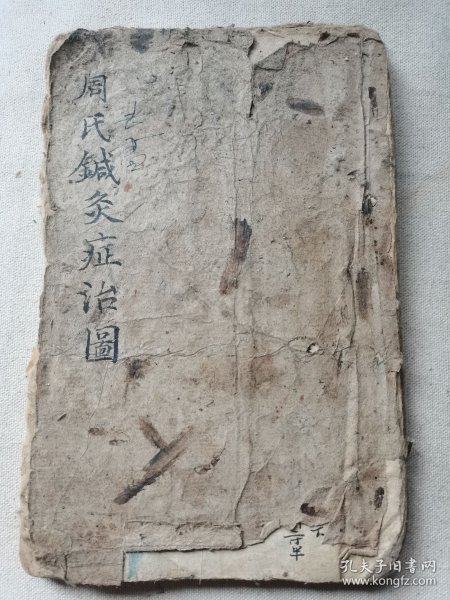 周氏鍼灸症治圖
孔夫子旧书网
www.kongfz.com